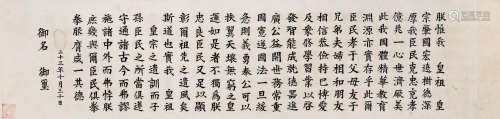 朕惟我 皇祖 皇
宗肇國宏遠樹德深
厚我臣民克忠克孝
億兆一心世濟厥美
此我國體精華教育
淵源亦實存乎此爾
臣民孝于父母友于
兄弟夫婦相和朋友
相信恭儉持己博愛
及衆修學習業以啓
發智能成就德器進
廣公益開世務常重
國憲遵國法一旦緩
急則義勇奉公以
扶翼天壤無窮之皇
運如是者不獨為朕
忠良臣民又足以顯
彰爾祖先之遺風矣
斯道也實我 皇祖
皇宗之遺訓而子
孫臣民之所當俱遵
守通諸古今而弗謬
施諸中外而弗悖朕
庶幾與爾臣民俱拳
拳服膺咸一其德
二十三年十月三十日
御名 御璽